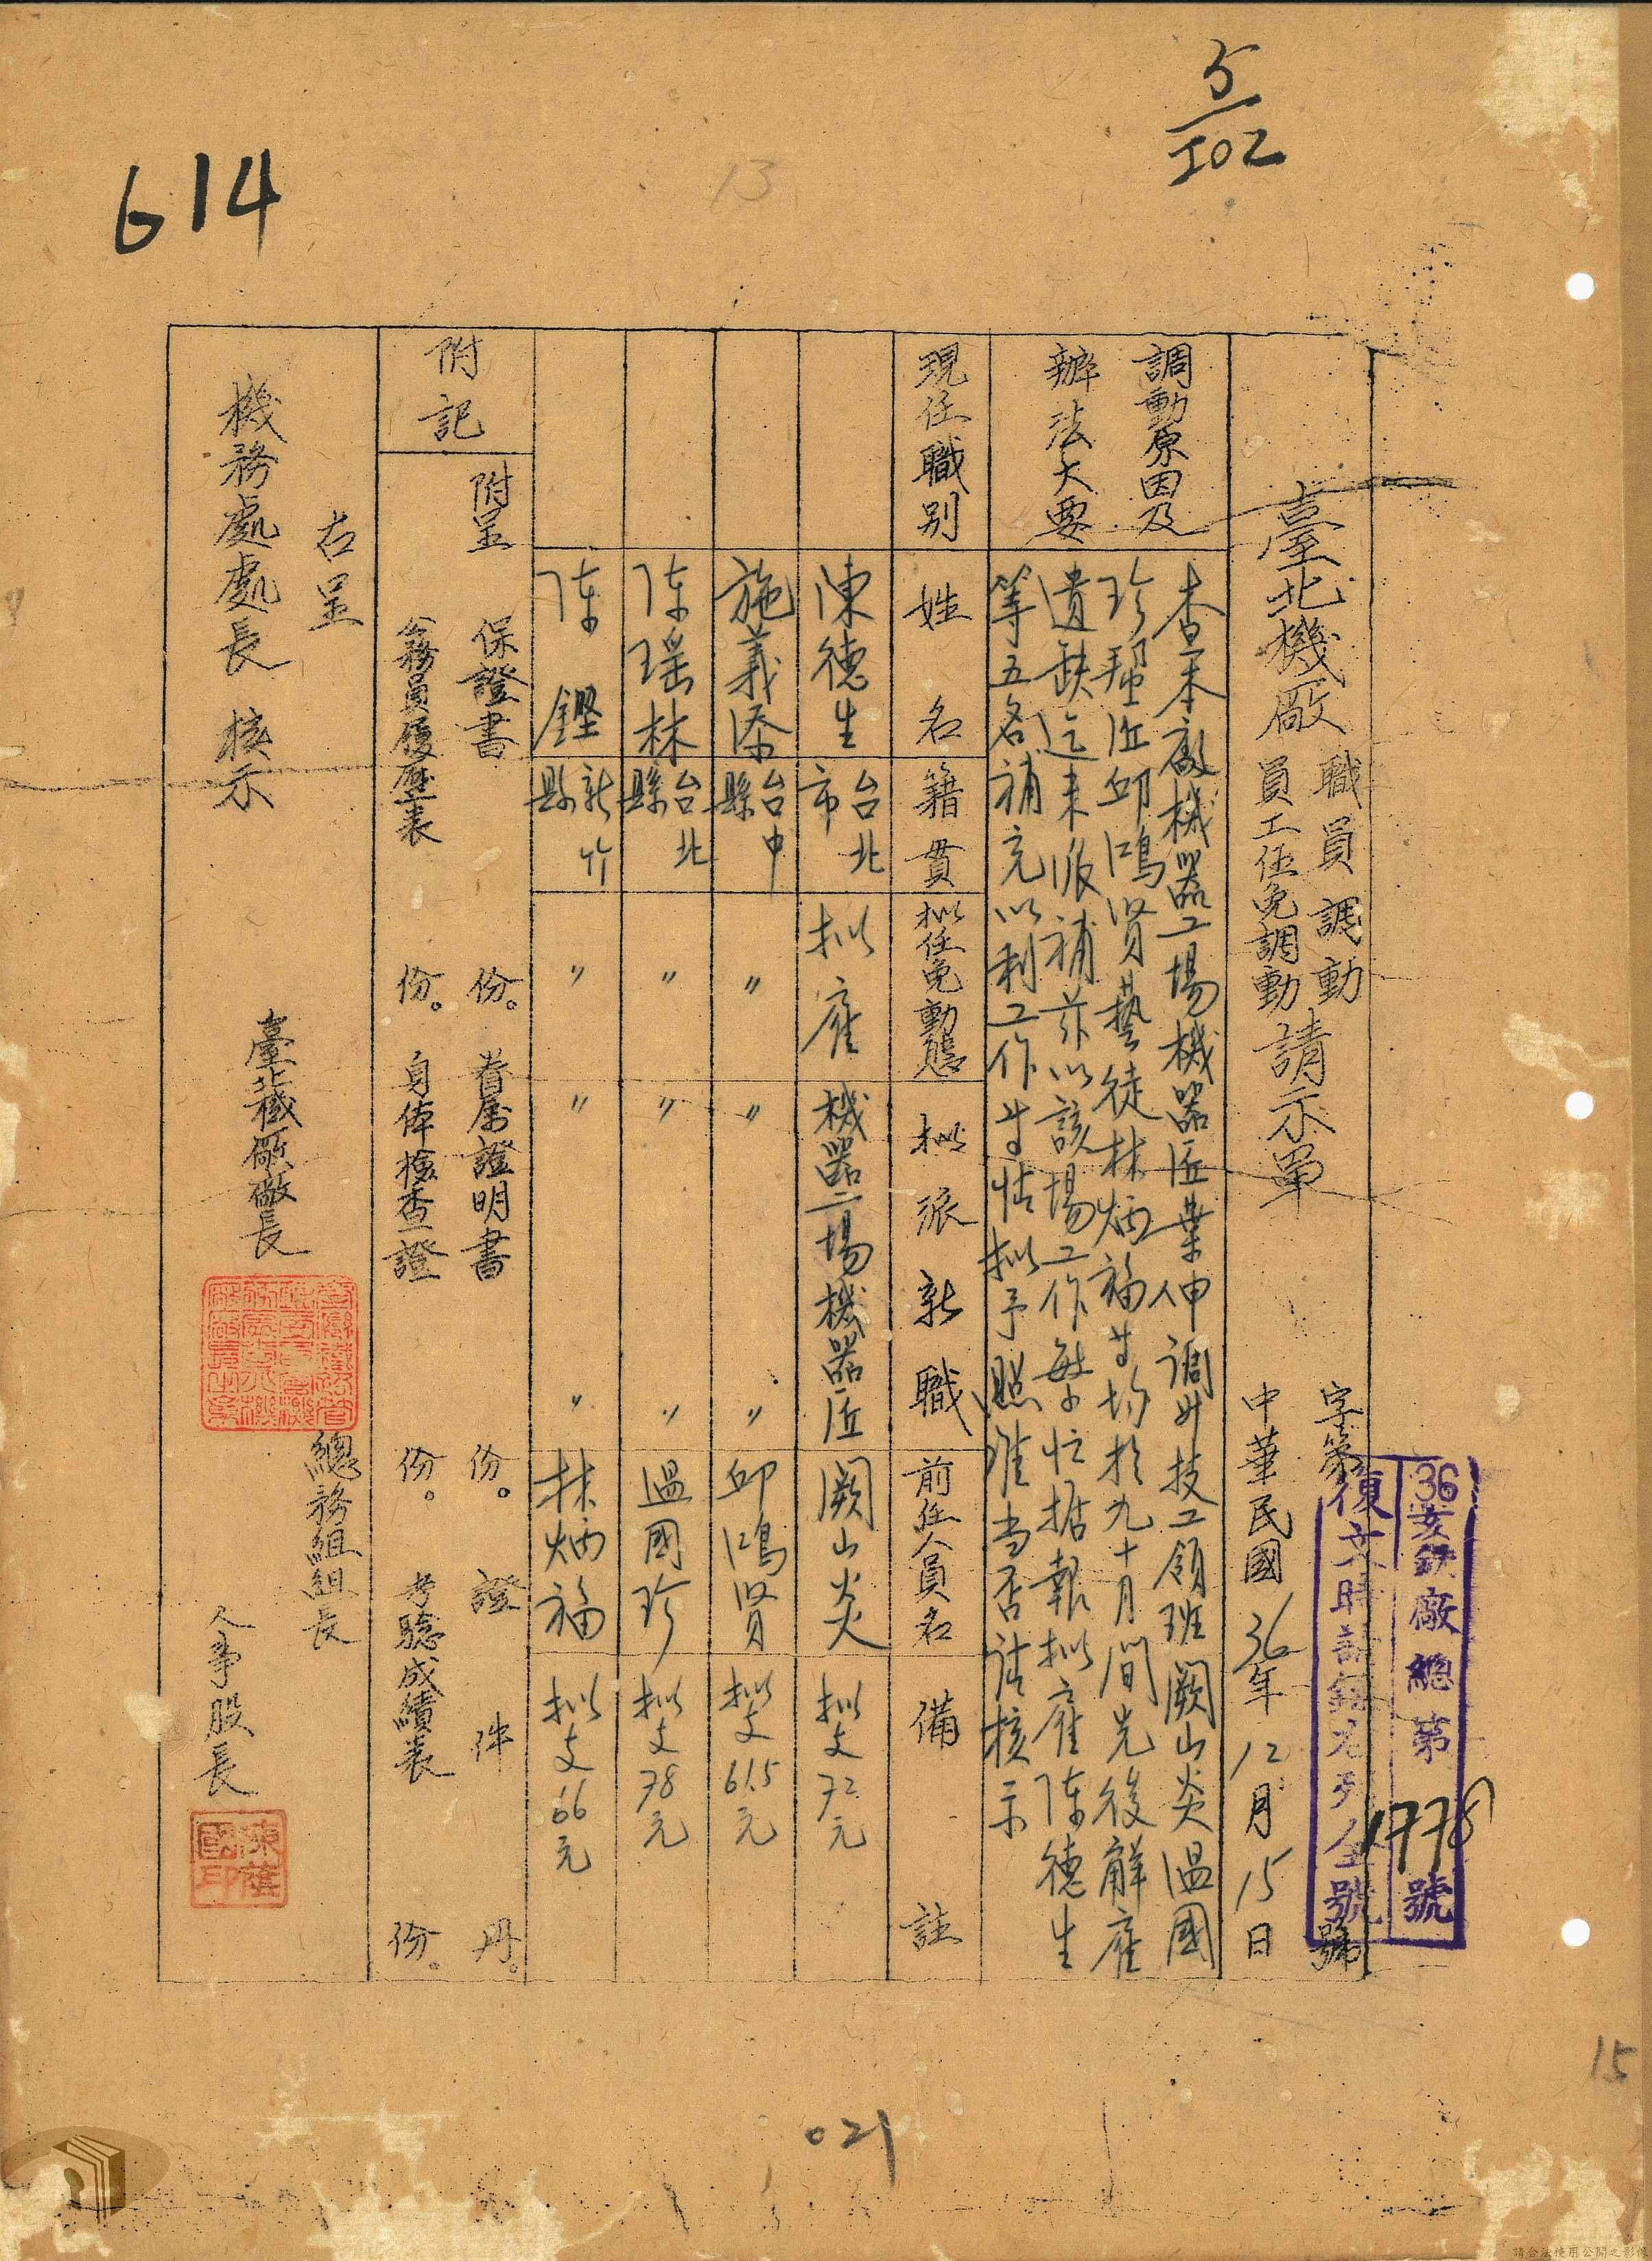 5/102
13
614
36安銩廠總第1778號
復文時請錄先列全號
字第 號
臺北機廠
職員調動
員工任免調動
請示單
中華民國36年12月15日
調動原因及
辦法大要
查本廠機器工場機器匠葉伸調升技工領班闕山炎溫國
珍 匠邱鴻賢藝徒林炳福等均於九十月間先後解雇
遺缺迄未派補茲以該場工作繁忙據報拟雇陈德生
等五名補充以利工作等情拟予照准当否請核示
現任職別 姓名 籍貫 拟任免動態 拟派新職 前任人員名 備註
陳德生 台北市 拟雇 機器工場機器匠 闕山炎 拟支72元
施義添 台中縣 〃 〃 〃 邱鴻賢 拟支61.5元
陈瑶林 台北縣 〃 〃 〃 溫國珍 拟支78元
陈鏗 新竹縣 〃 〃 〃 林炳福 拟支66元
附記
附呈 保證書 份。眷屬證明書 份。證件 冊。
公務員履歷表 份。身体檢查證 份。考驗成績表 份。
右呈
機務處處長 核示
臺北機廠廠長
總務組組長
人事股長
陳蔭國印
15
021
請合法使用公開之影像